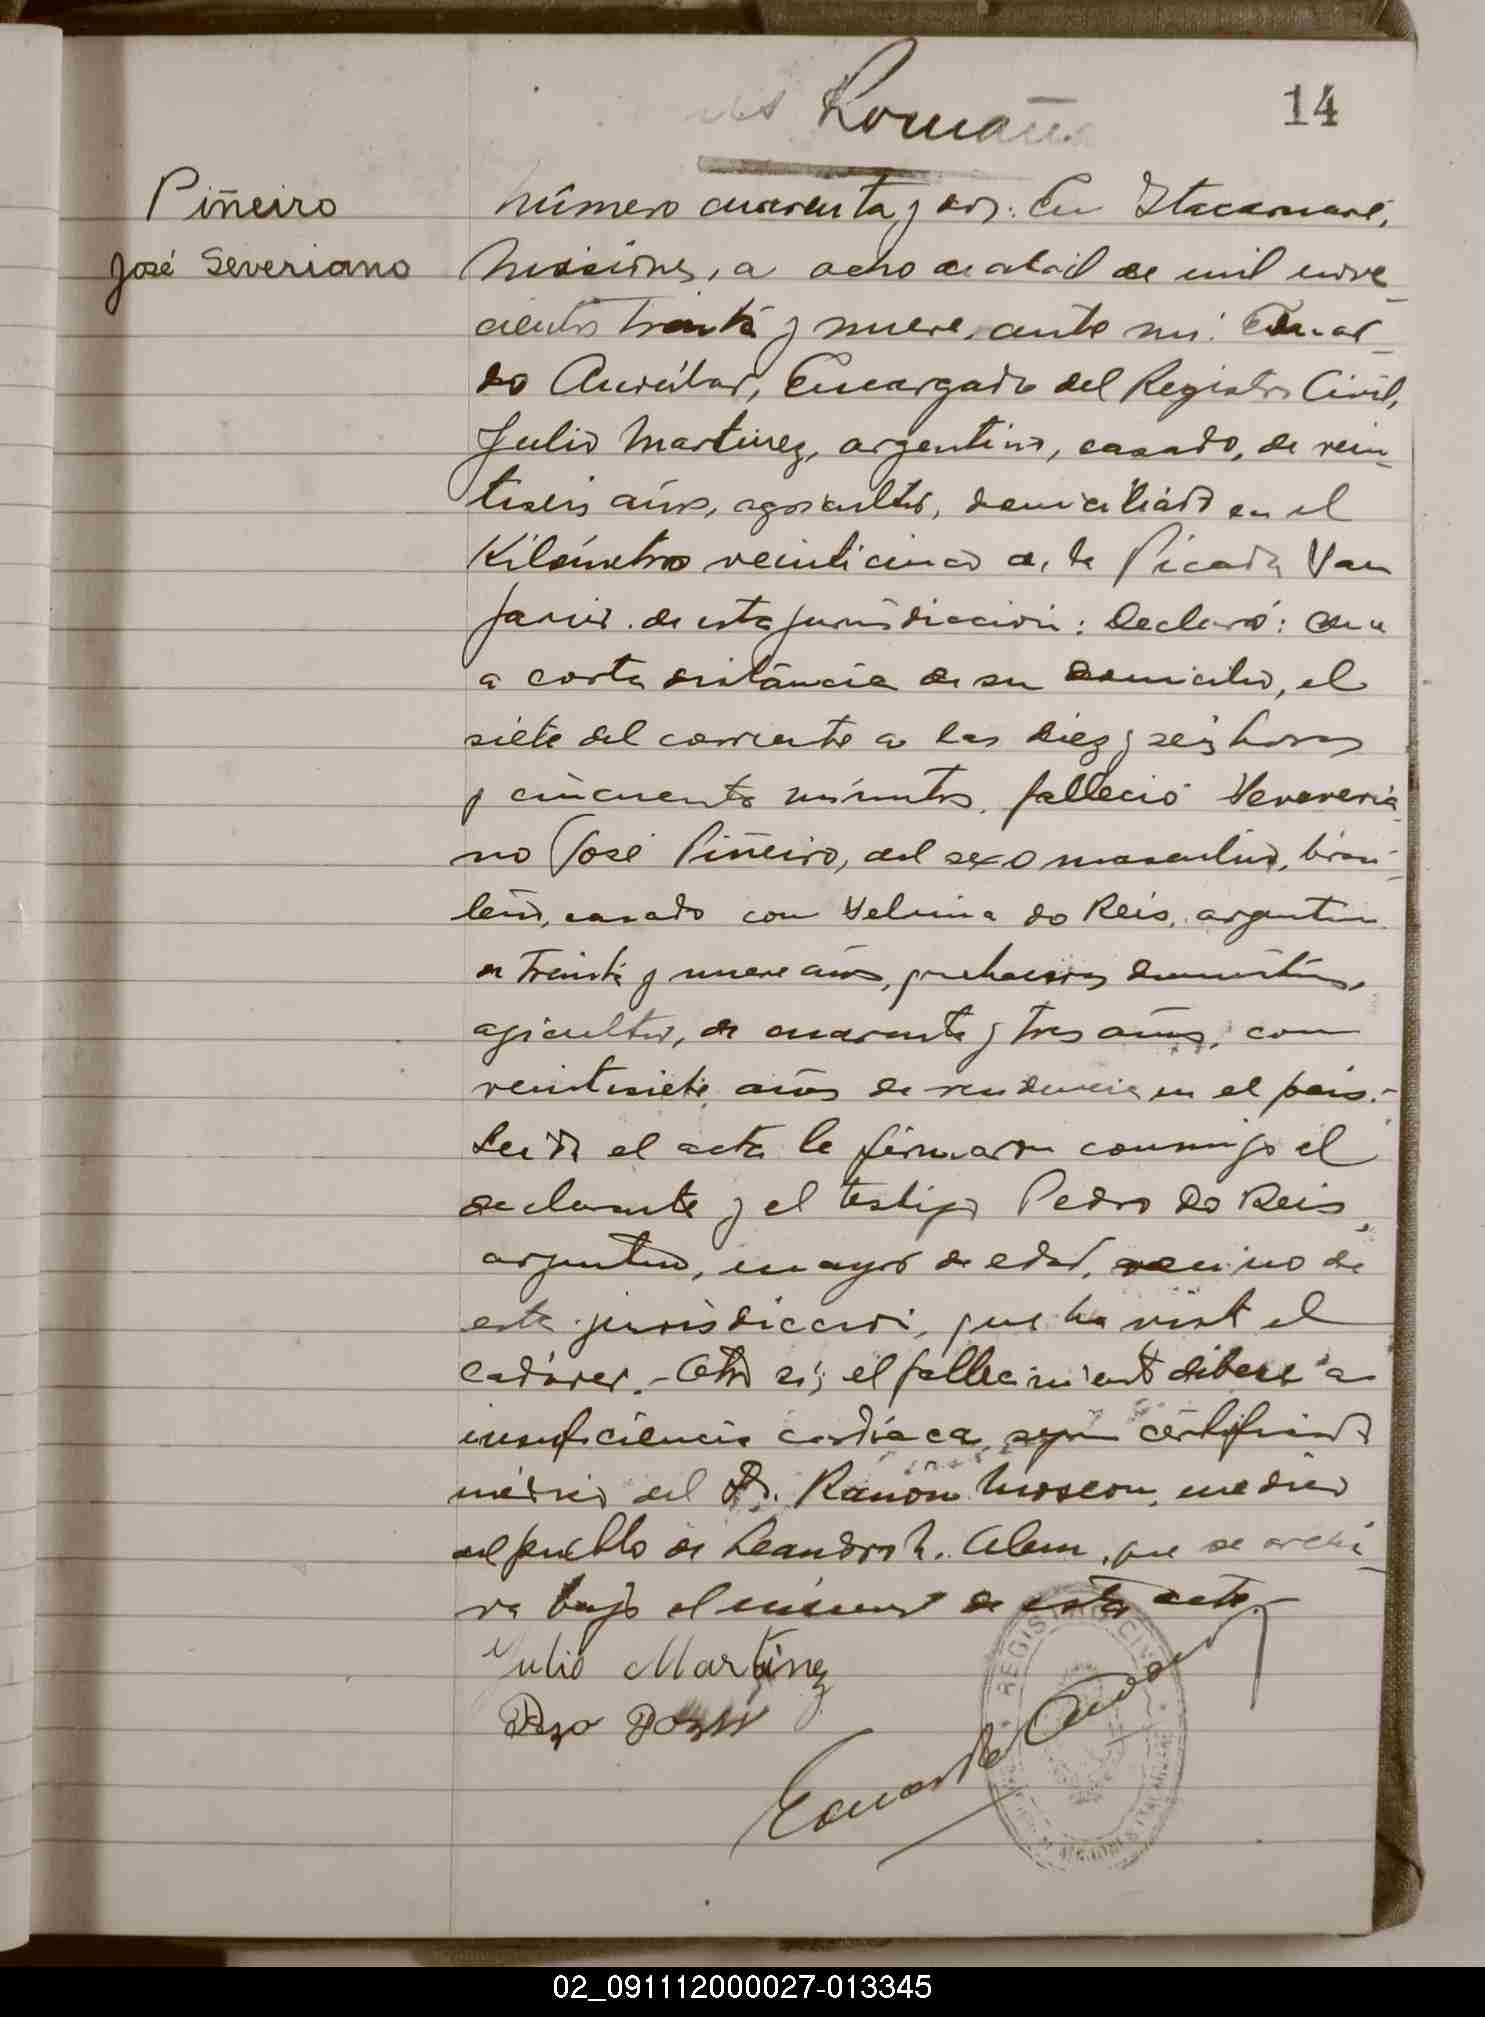 Romaña
14
Piñeiro
José Severiano
Número cuarenta y dos: En Itacaruaré,
Misiones, a ocho de abril de mil nove_
cientos treinta y nueve, ante mi: Eduar_
do Andúbar, Encargado del Registro Civil,
Julio Martinez, argentino, casado, de vein_
tiseis años, agricultor, domiciliado en el
Kilómetro veinticinco de la Picada San
Javier de esta jurisdicción: Declaró: Que
a corta distáncia de su domicilio, el
siete del corriente a las diez y seis horas
y cincuenta minutos, falleció Severeria_
no José Piñeiro, del sexo masculino, brasi_
leño, casado con Selmina do Reis, argentina
de treinta y nueve años, quehaceres domésticos,
agricultor, de cuarenta y tres años, con
veintisiete años de residencia en el país.-
Leida el acta la firmaron conmigo el
declarante y el testigo Pedro Do Reis,
argentino, mayor de edad, vecino de
esta jurisdicción, que ha visto el
cadáver.- Otro sí; el fallecimiento débese a
insuficiencia cardíaca, segun certificado
médico del Dr. Ramón Moscon, médico
del pueblo de Leandro N. Alem, que se archi_
va bajo el número de esta acta.-
Julio Martinez
Eduardo
REGISTRO CIVIL
02_091112000027-013345